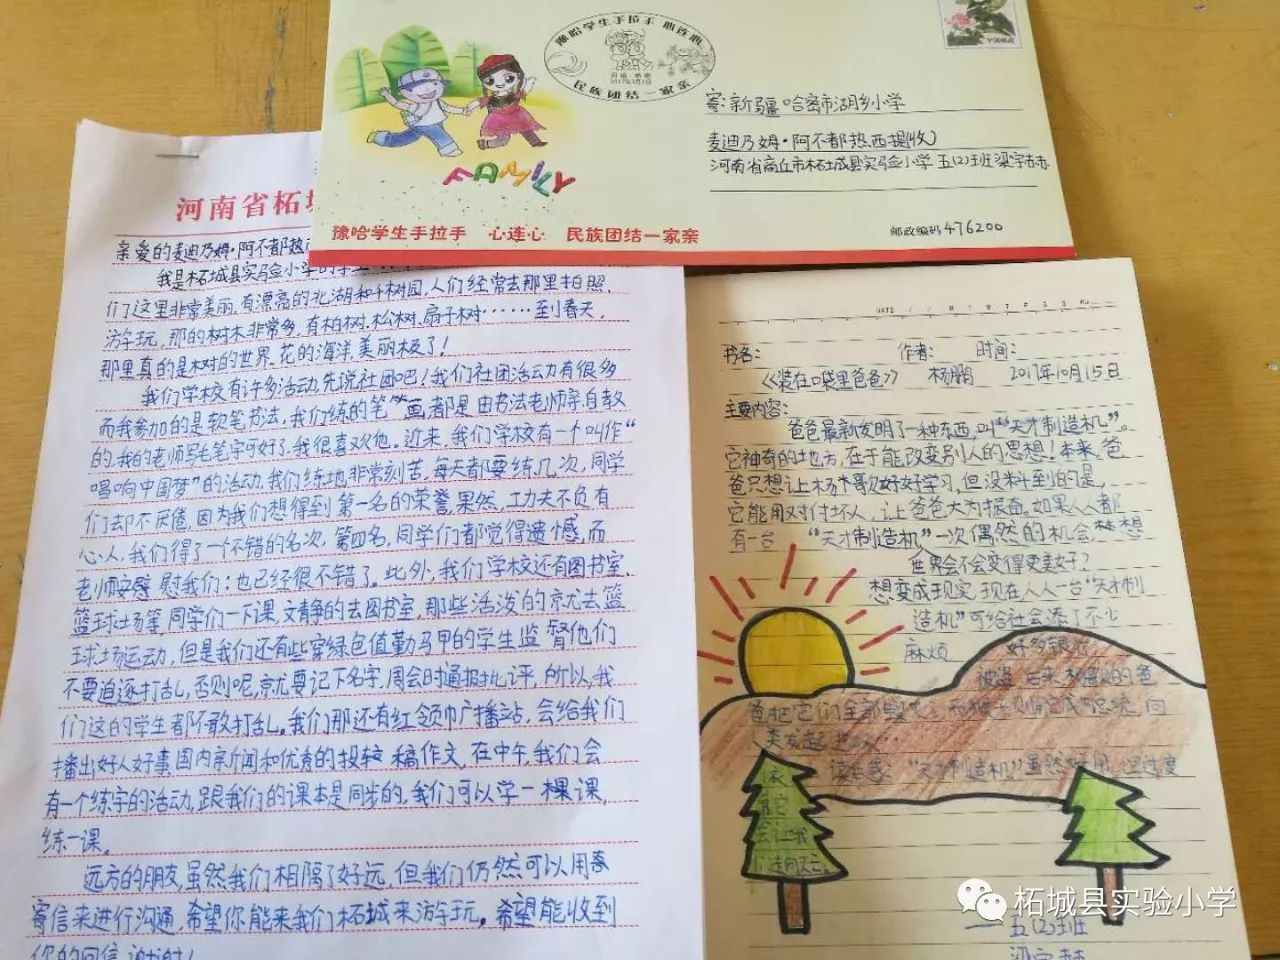 豫哈学生手拉手 心连心
民族团结一家亲
中国邮政
寄:新疆哈密市湖乡小学
麦迪乃姆·阿不都热西提(收)
河南省商丘市柘城县实验小学 五(2)班梁宇赫
FAMILY
豫哈学生手拉手 心连心 民族团结一家亲
邮政编码 476200
河南省柘
亲爱的麦迪乃姆·阿不都热
我是柘城县实验小学的学生
们这里非常美丽,有漂亮的北湖和叶树园,人们经常去那里拍照、
游玩,那的树木非常多,有柏树、松树、扇子树……到春天,
那里真的是树的世界、花的海洋,美丽极了!
我们学校有许多活动,先说社团吧!我们社团活动有很多
而我参加的是软笔书法,我们练的笔画都是由书法老师亲自教
的,我的老师写毛笔字可好了,我很喜欢他。近来,我们学校有一个叫作“
唱响中国梦”的活动,我们练地非常刻苦,每天都要练几次,同学
们却不厌倦,因为我们想得到第一名的荣誉,果然,工夫不负有
心人,我们得了一个不错的名次,第四名,同学们都觉得遗憾,而
老师安慰我们:也已经很不错了。此外,我们学校还有图书室、
篮球场等,同学们一下课,文静的去图书室,那些活泼的就去篮
球场运动,但是我们还有些穿绿色值勤马甲的学生监督他们
不要追逐打乱,否则呢,就要记下名字,周会时通报批评,所以,我
们这的学生都不敢打乱。我们那还有红领巾广播站,会给我们
播出好人好事、国内新闻和优秀的投稿作文,在中午,我们会
有一个练字的活动,跟我们的课本是同步的,我们可以学一棵课,
练一课。
远方的朋友,虽然我们相隔了好远,但我们仍然可以用寄
寄信来进行沟通,希望你能来我们柘城来游玩。希望能收到
你的回信,谢谢!
DATE
书名: 作者: 时间:
《装在口袋里爸爸》 杨鹏 2017年10月15日
主要内容:
爸爸最新发明了一种东西,叫“天才制造机”。
它神奇的地方,在于能改变别人的思想!本来,爸
爸只想让杨歌好好学习,但没料到的是,
它能用对付坏人,让爸爸大为振奋。如果人人都
有一台 “天才制造机”一次偶然的机会,梦想
世界会不会变得更美好?
想变成现实,现在人人一台“天才制
造机”可给社会添了不少
麻烦 好多银
后来,杨歌的爸
爸把它们全部
读后感:“天才制造机”虽然好用,但过度
五(2)班
梁宇赫
柘城县实验小学